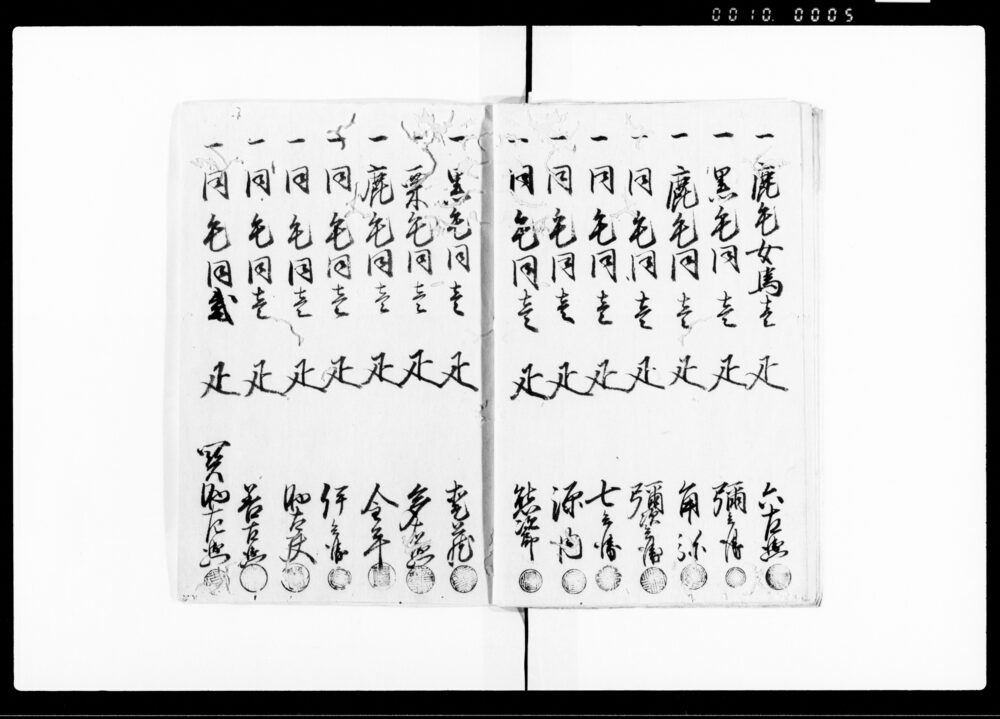 0010. 0005
一 鹿毛女馬壱疋 六右衛門
一 黒毛同壱疋 彌兵衛
一 鹿毛同壱疋 角弥
一 同毛同壱疋 彌次兵衛
一 同毛同壱疋 七兵衛
一 同毛同壱疋 源内
一 同毛同壱疋 熊次郎
一 黒毛同壱疋
一 栗毛同壱疋 多右衛門
一 鹿毛同壱疋
一 同毛同壱疋 伊兵衛
一 同毛同壱疋 助太夫
一 同毛同壱疋 善右衛門
一 同毛同弐疋